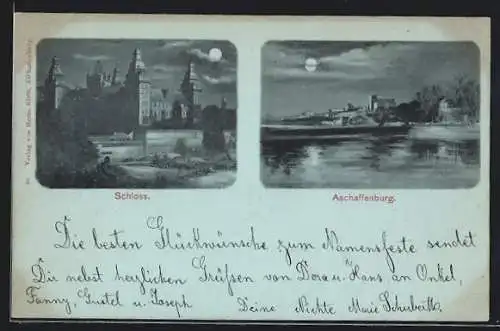 Schloss.
Aschaffenburg.
Die besten Glückwünsche zum Namensfeste sendet
Dir nebst herzlichen Grüßen von Dora u. Hans an Onkel,
Fanny, Gustel u. Joseph Deine Nichte Marie
Verlag von